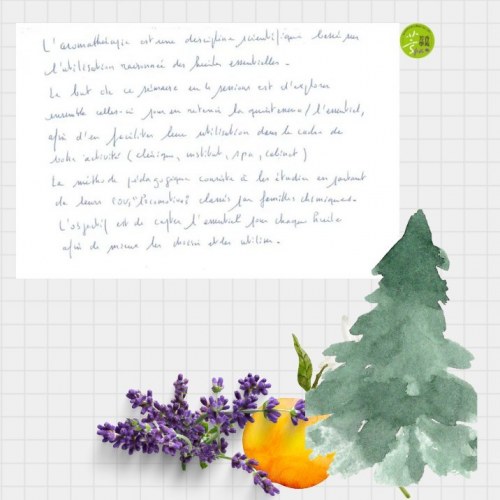 L'aromathérapie est une discipline scientifique basée sur
l'utilisation raisonnée des huiles essentielles.
Le but de ce séminaire en 4 sessions est d'explorer
ensemble celles-ci pour en retenir la quintessence / l'essentiel,
afin d'en faciliter leur utilisation dans le cadre de
votre activité (clinique, institut, spa, cabinet)
La méthode pédagogique consiste à les étudier en partant
de leurs COV, classés par familles chimiques.
L'objectif est de capter l'essentiel pour chaque huile
afin de mieux les choisir et les utiliser.